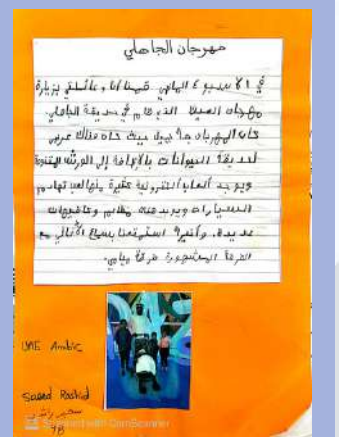 مهرجان الجاهلي
في الاسبوع الماضي قمنا أنا وعائلتي بزيارة
مهرجان الصيف الذي قام في حديقة الجاهلي.
كان المهرجان حيث كان هناك عرض
لحديقة الحيوانات بالإضافة إلى الورش المتنوعة
ويوجد ألعاب الكترونية كثيرة
السيارات ويوجد مطاعم
عديدة. وأخيرا استمتعنا بسماع الأغاني مع
الفرقة المشهورة فرقة ميامي.
UAE Arabic
Saeed Rashid
سعيد راشد
7B
Scanned with CamScanner